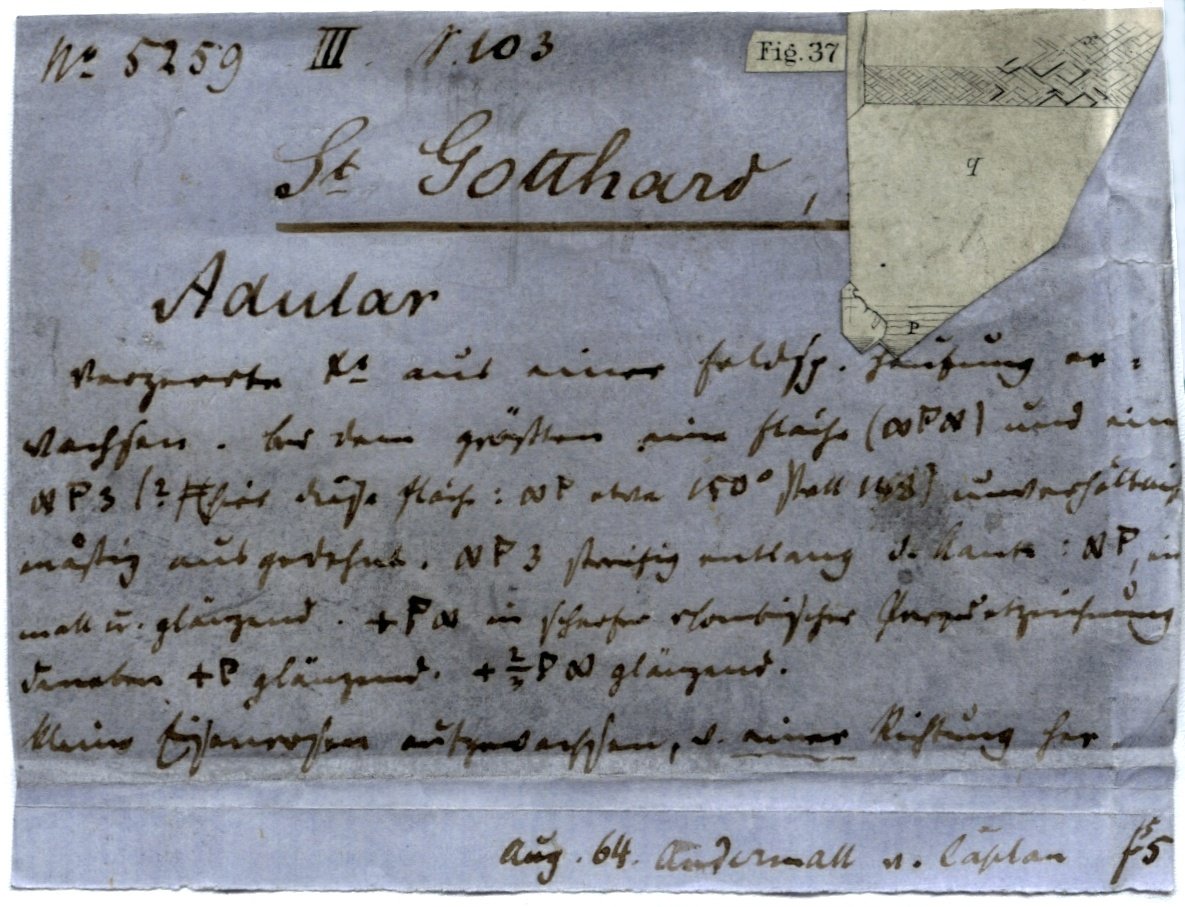 No 5259 III. V.103
Fig. 37
St Gotthard,
q
Adular
P
verzerrte Kr aus einer feldsp. Häufung er-
wachsen. bei dem größten eine fläche (∞P∞) und ein
∞P3 (? diese fläche : ∞P etwa 150° statt 148) unverhältniß
mäßig ausgedehnt. ∞P3 streifig entlang d. Kante : ∞P, in
matt u. glänzend. +P∞ in scharfer rhombischer Parquetzeichnung
daneben +P glänzend. +2/3P∞ glänzend.
kleine Eisenrosen aufgewachsen, v. einer Richtung her.
Aug. 64. Andermatt v. 5